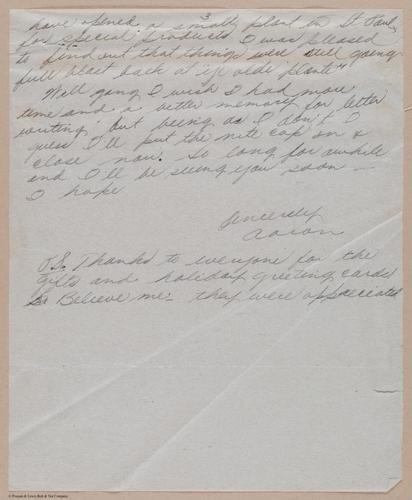 3
have opened a small plant in St Paul
for special products I was pleased
to find out that things were still going
full blast back at "ye olde plante"
Well gang I wish I had more
time and a better memory for letter
writing, but being as I don't I
guess I'll put the nite cap on &
close now. So long for awhile
and I'll be seeing you soon —
I hope
Sincerely
Aaron
P.S. Thanks to everyone for the
gifts and holiday greeting cards
Believe me - they were appreciated
© Pioneer & Lewis Bolt & Nut Company